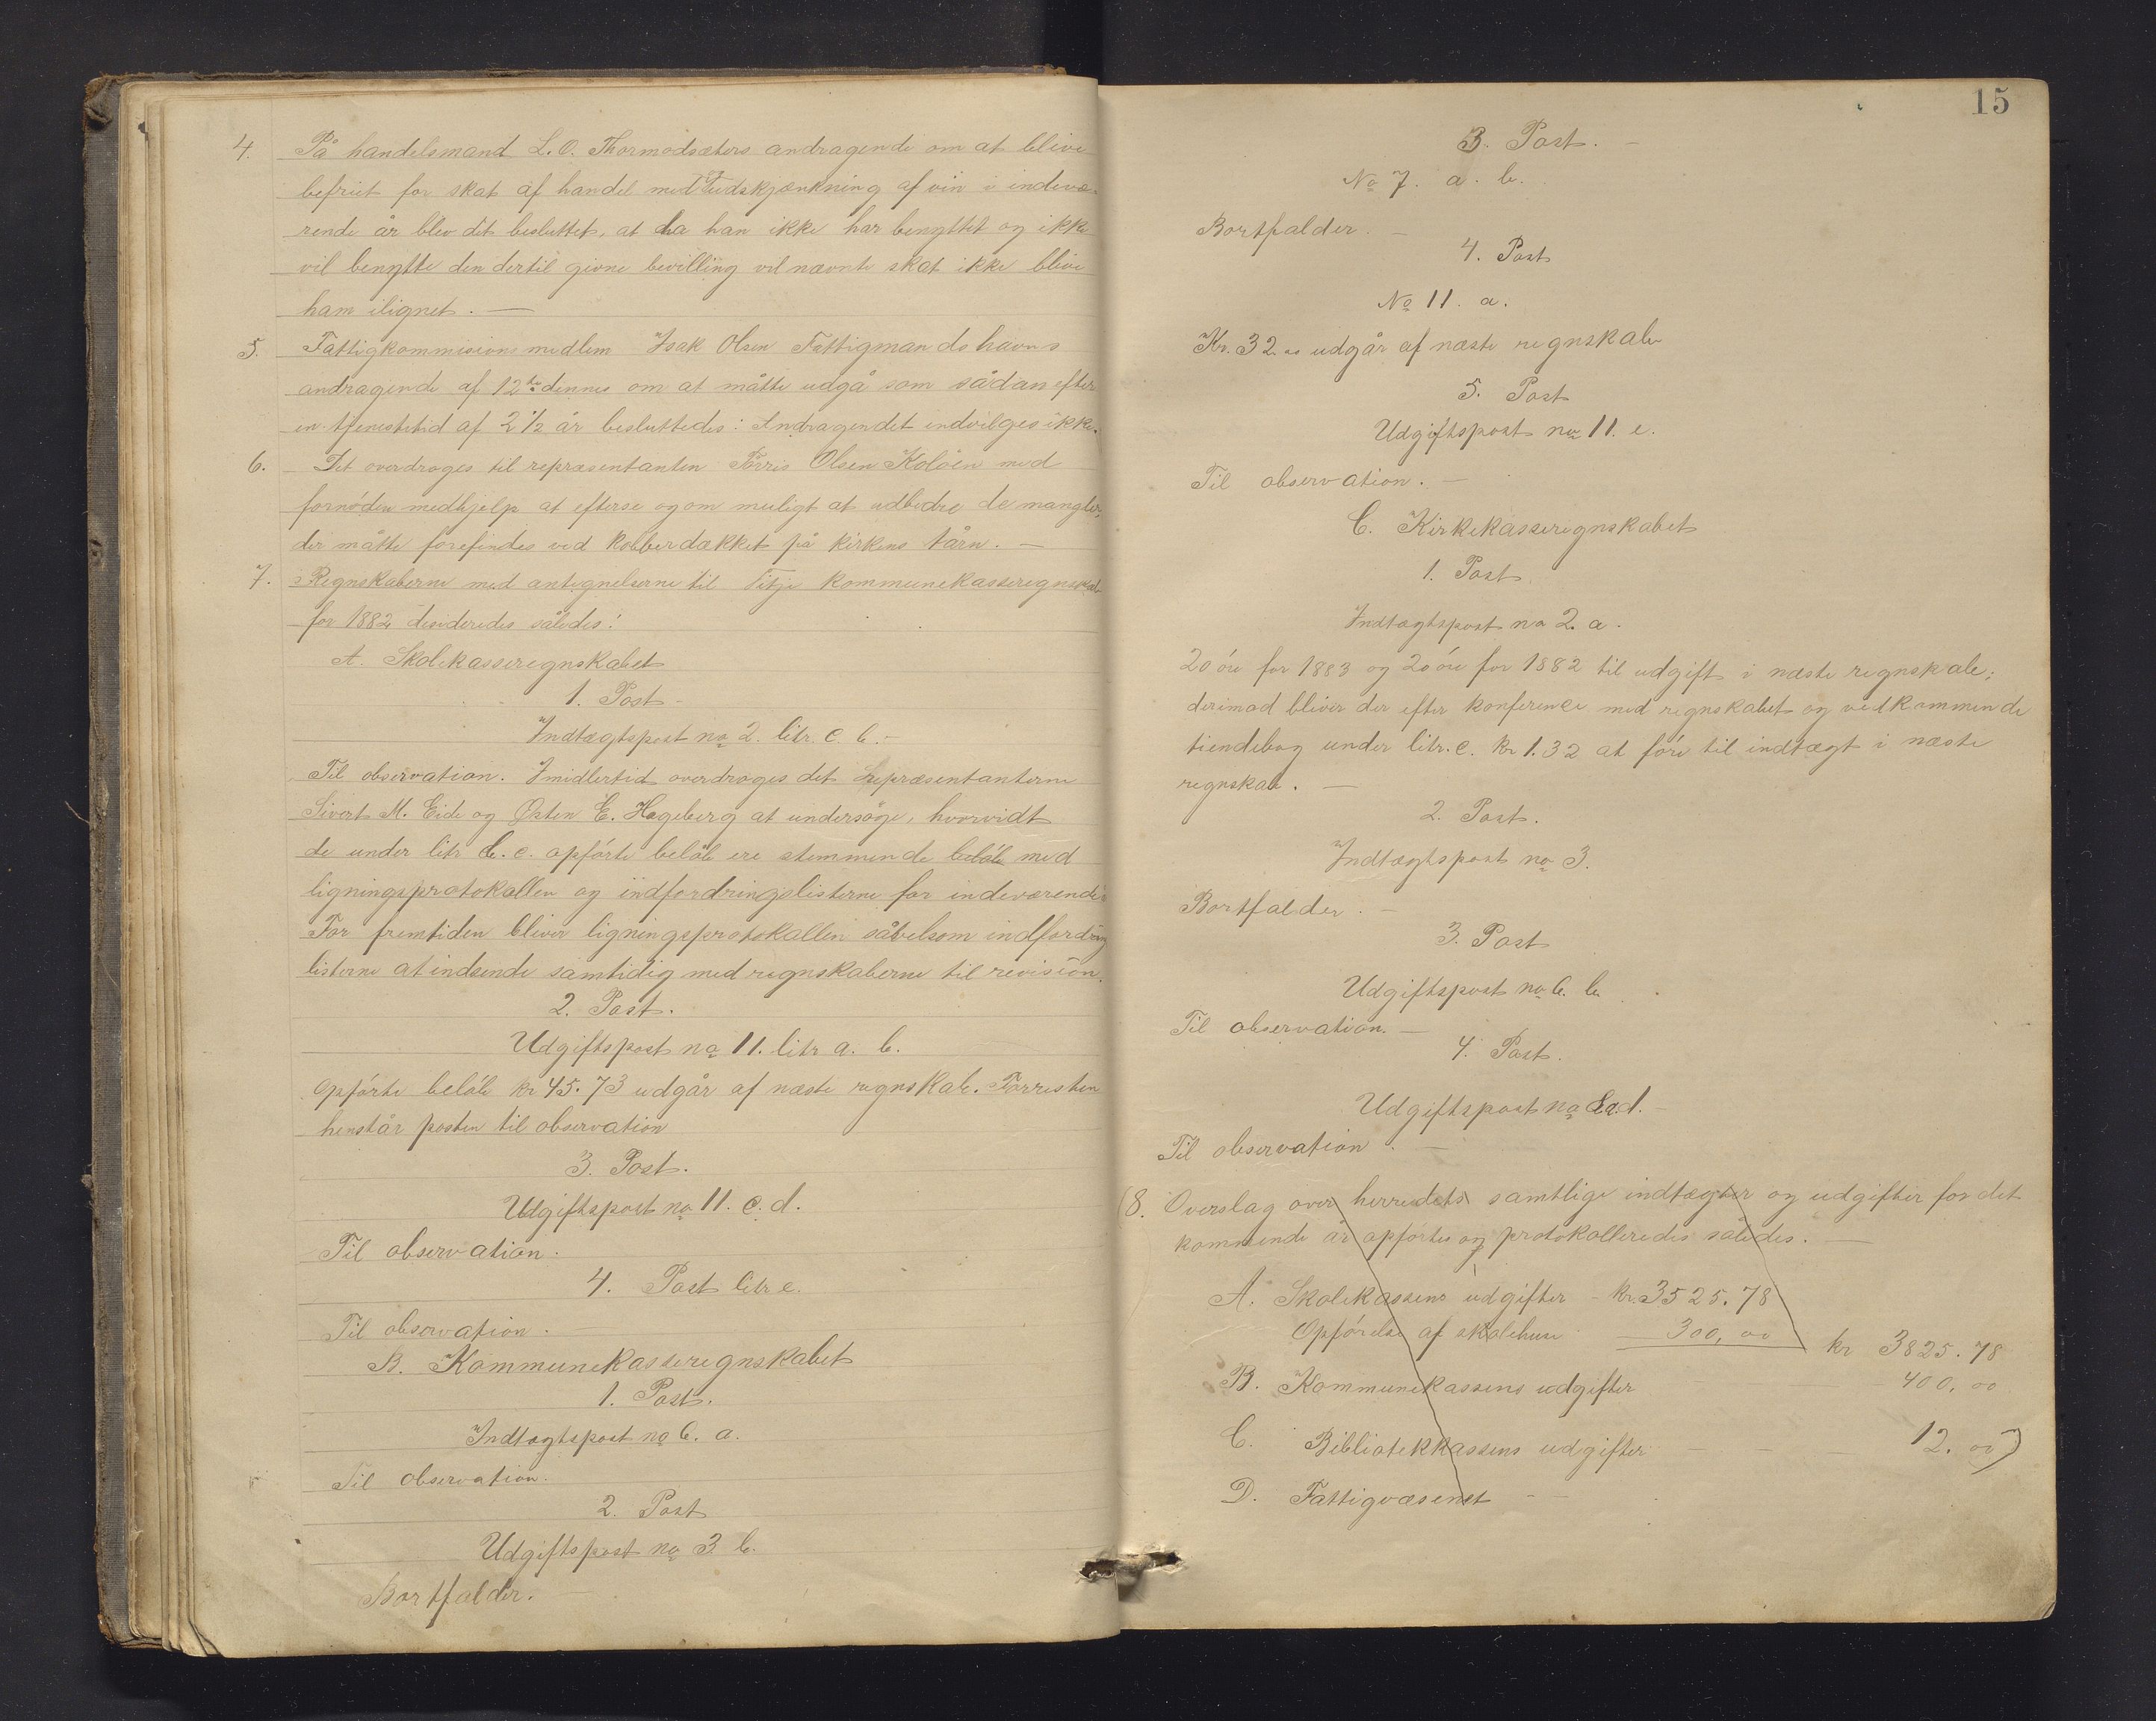 4. På handelsmand L. O. Thormodsæters andragende om at blive
befriet for skat af handel med & udskjænkning af vin i indevæ-
rende år blev det besluttet, at da han ikke har benyttet og ikke
vil benytte den dertil givne bevilling vil nævnte skat ikke blive
ham ilignet. —
5. Fattigkommisionsmedlem Isak Olsen Fattigmandshavns
andragende af 12te dennes om at måtte udgå som sådan efter
en tjenestetid af 2 1/2 år besluttedes: Andragendet indvilges ikke.
6. Det overdroges til repræsentanten Torris Olsen Koløen med
fornøden medhjelp at efterse og om muligt at udbedre de mangler,
der måtte forefindes ved kobberdækket på kirkens tårn. —
7. Regnskaberne med antegnelserne til Fitje kommunekasseregnskab
for 1882 desideredes således:
A. Skolekasseregnskabet
1. Post –
Indtægtspost no 2. litr. c. b. –
Til observation. Imidlertid overdroges det repræsentanterne
Sivert M. Eide og Østen E. Hageberg at undersøge, hvorvidt
de under litr b. c. opførte beløb ere stemmende beløb med
ligningsprotokollen og indfordringslisterne for indeværende
For fremtiden bliver ligningsprotokollen såvelsom indfordring
listerne at indsende samtidig med regnskaberne til revision.
2. Post.
Udgiftspost no 11. litr a. b.
Opførte beløb kr 45.73 udgår af næste regnskab. Forresten
henstår posten til observation
3. Post.
Udgiftspost no 11. c. d.
Til observation.
4. Post litr e.
Til observation.
B. Kommunekasseregnskabet
1. Post.
Indtægtspost no 6. a.
Til observation.
2. Post
Udgiftspost no 3 b.
Bortfalder. —
15
3. Post. –
No 7. a. b.
Bortfalder. –
4. Post
No 11. a.
Kr. 32.00 udgår af næste regnskab
5. Post
Udgiftspost no 11. e.
Til observation. –
C. Kirkekasseregnskabet
1. Post
Indtægtspost no 2. a.
20 øre for 1883 og 20 øre for 1882 til udgift i næste regnskab;
derimod bliver der efter konference med regnskabet og vedkommende
tiendebog under litr. c. kr 1.32 at føre til indtægt i næste
regnskab. —
2. Post.
Indtægtspost no 3.
Bortfalder. –
3. Post
Udgiftspost no 6. b.
Til observation. —
4. Post.
Udgiftspost no d. –
Til observation. —
(8. Overslag over herredets samtlige indtægter og udgifter for det
kommende år opførtes og protokolleredes således. —
A. Skolekassens udgifter – kr. 3525.78
Opførelse af skolehuse 300,00 kr 3825.78
B. Kommunekassens udgifter – 400,00
C. Bibliotekkassens udgifter – 12.00)
D. Fattigvæsenet –